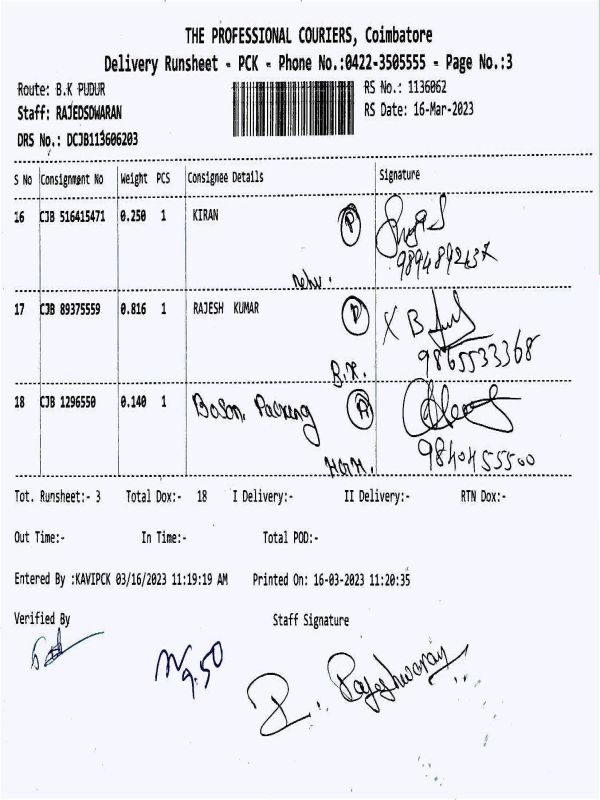 THE PROFESSIONAL COURIERS, Coimbatore
Delivery Runsheet - PCK - Phone No.:0422-3505555 - Page No.:3
Route: B.K PUDUR RS No.: 1136062
Staff: RAJEDSDWARAN RS Date: 16-Mar-2023
DRS No.: DCJB113606203
S No Consignment No Weight PCS Consignee Details Signature
16 CJB 516415471 0.250 1 KIRAN P
17 CJB 89375559 0.816 1 RAJESH KUMAR P
X B
9865533368
B.K.
18 CJB 1296550 0.140 1 A
9840455500
Tot. Runsheet:- 3 Total Dox:- 18 I Delivery:- II Delivery:- RTN Dox:-
Out Time:- In Time:- Total POD:-
Entered By :KAVIPCK 03/16/2023 11:19:19 AM Printed On: 16-03-2023 11:20:35
Verified By Staff Signature
9.50
P. Rajeshwaran